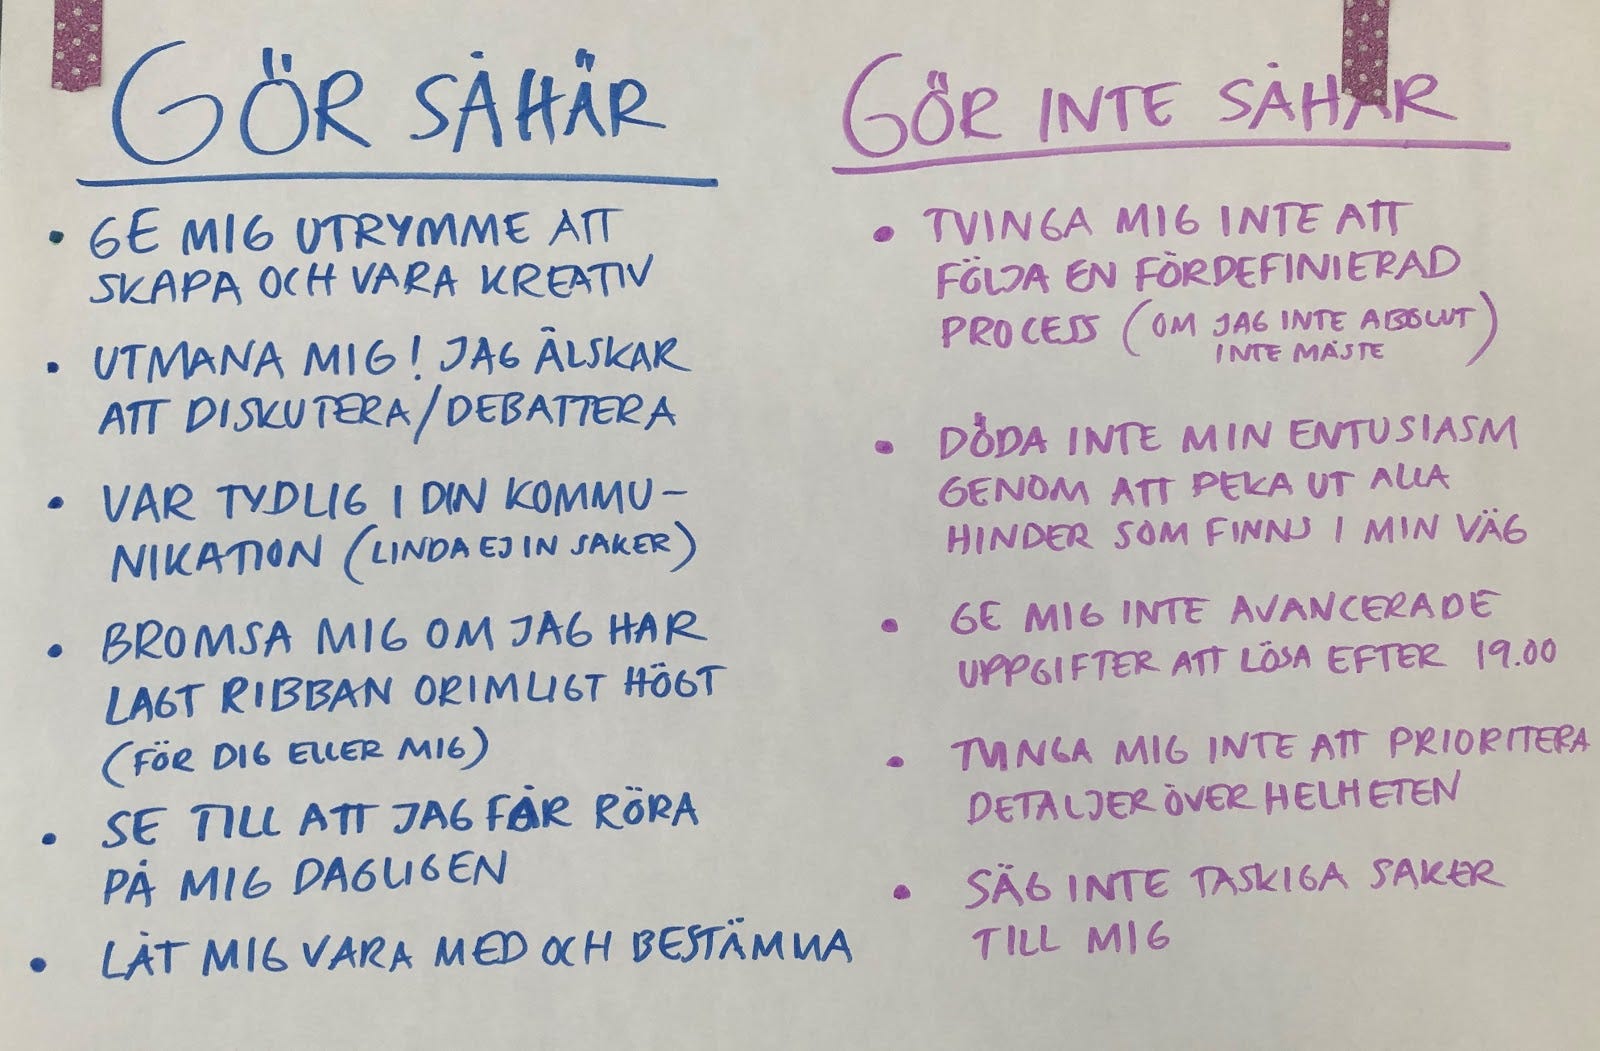 GÖR SÅHÄR
• GE MIG UTRYMME ATT
SKAPA OCH VARA KREATIV
• UTMANA MIG! JAG ÄLSKAR
ATT DISKUTERA/DEBATTERA
• VAR TYDLIG I DIN KOMMU-
NIKATION (LINDA EJ IN SAKER)
• BROMSA MIG OM JAG HAR
LAGT RIBBAN ORIMLIGT HÖGT
(FÖR DIG ELLER MIG)
• SE TILL ATT JAG FÅR RÖRA
PÅ MIG DAGLIGEN
• LÅT MIG VARA MED OCH BESTÄMMA
GÖR INTE SÅHÄR
• TVINGA MIG INTE ATT
FÖLJA EN FÖRDEFINIERAD
PROCESS (OM JAG INTE ABSOLUT
INTE MÅSTE)
• DÖDA INTE MIN ENTUSIASM
GENOM ATT PEKA UT ALLA
HINDER SOM FINNS I MIN VÄG
• GE MIG INTE AVANCERADE
UPPGIFTER ATT LÖSA EFTER 19.00
• TVINGA MIG INTE ATT PRIORITERA
DETALJER ÖVER HELHETEN
• SÄG INTE TASKIGA SAKER
TILL MIG